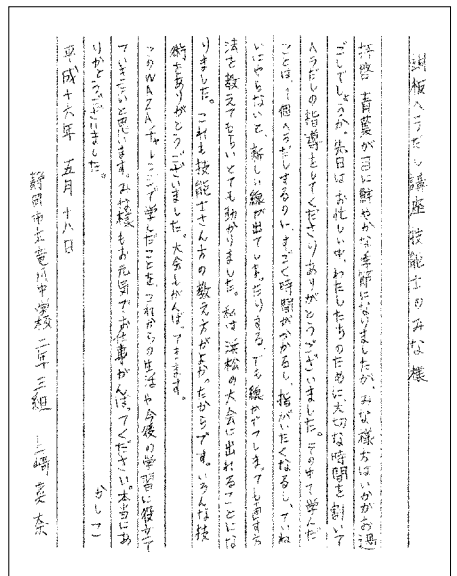 銅板へらだし講座技能士のみな様
拝啓 青葉が目に鮮やかな季節になりましたが、みな様方はいかがお過
ごしでしょうか。先日はお忙しい中、わたしたちのために大切な時間を割いて
へらだしの指導をしてくださりありがとうございました。その中で学んだ
ことは、一個へらだしするのにすごく時間がかかるし、指がいたくなるし、ていね
いにやらないと、新しい線が出てしまったりする。でも線がでてしまっても直す方
法を教えてもらいとても助かりました。私は浜松の大会に出れることにな
りました。これも技能士さん方の教え方がよかったからです。いろんな技
術をありがとうございました。大会もがんばってきます。
このWAZAチャレンジで学んだことを、これからの生活や今後の学習に役立て
ていきたいと思います。みな様もお元気でお仕事がんばってください。本当にあ
りがとうございました。
かしこ
平成十六年 五月 十八日
静岡市立竜爪中学校 二年三組